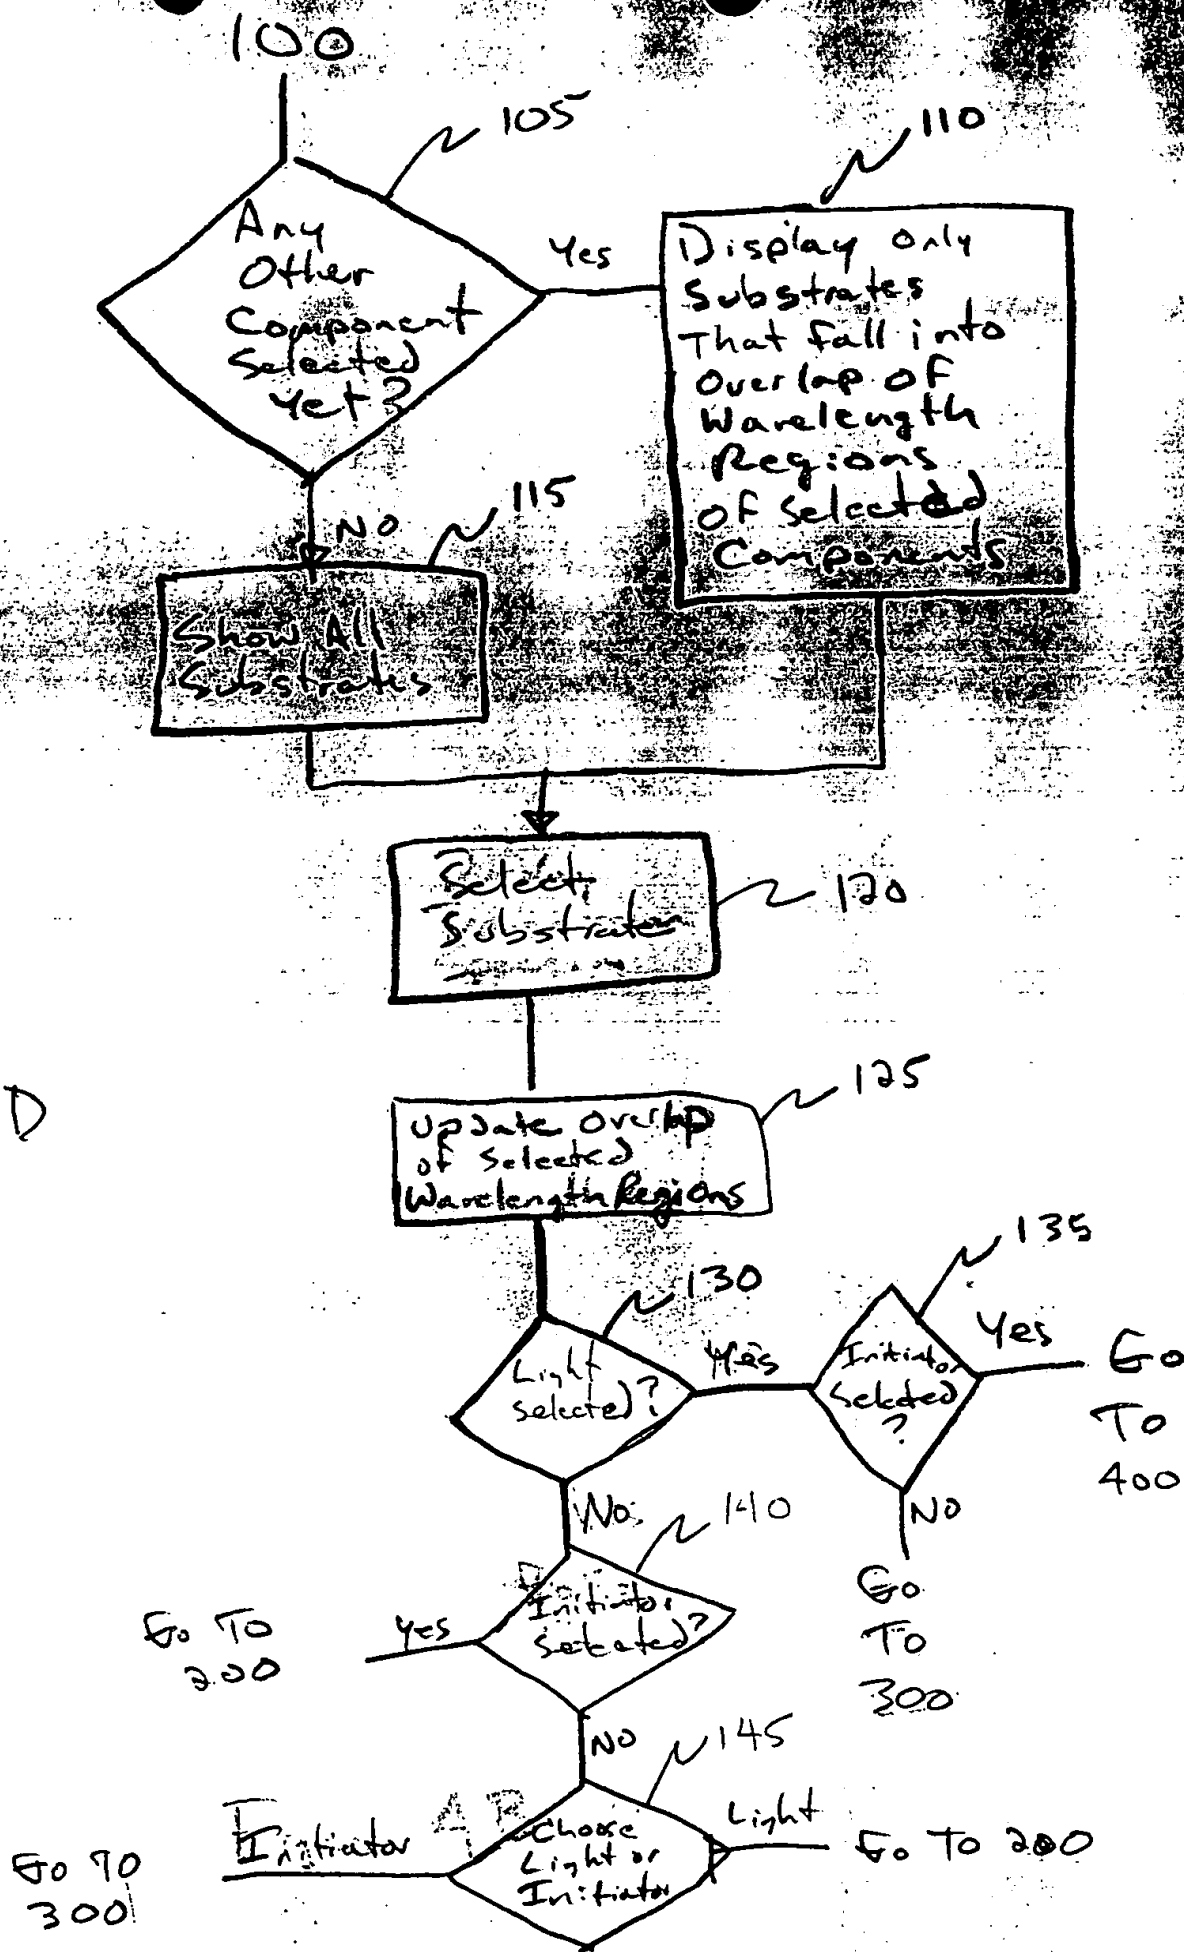 100
105
110
Any
Other
Component
Selected
Yet?
Yes
Display Only
Substrates
That fall into
Overlap of
Wavelength
Regions
Of Selected
Components
NO
115
Show All
Substrates
Select
Substrate
120
D
125
Update Overlap
of Selected
Wavelength Regions
130
135
Light
selected?
Yes
Initiator
Selected
?
Yes
Go
To
400
No
140
NO
Go
To
300
Initiator
Selected?
Yes
Go To
200
NO
145
Initiator
Choose
Light or
Initiator
Light
Go To 200
Go To
300